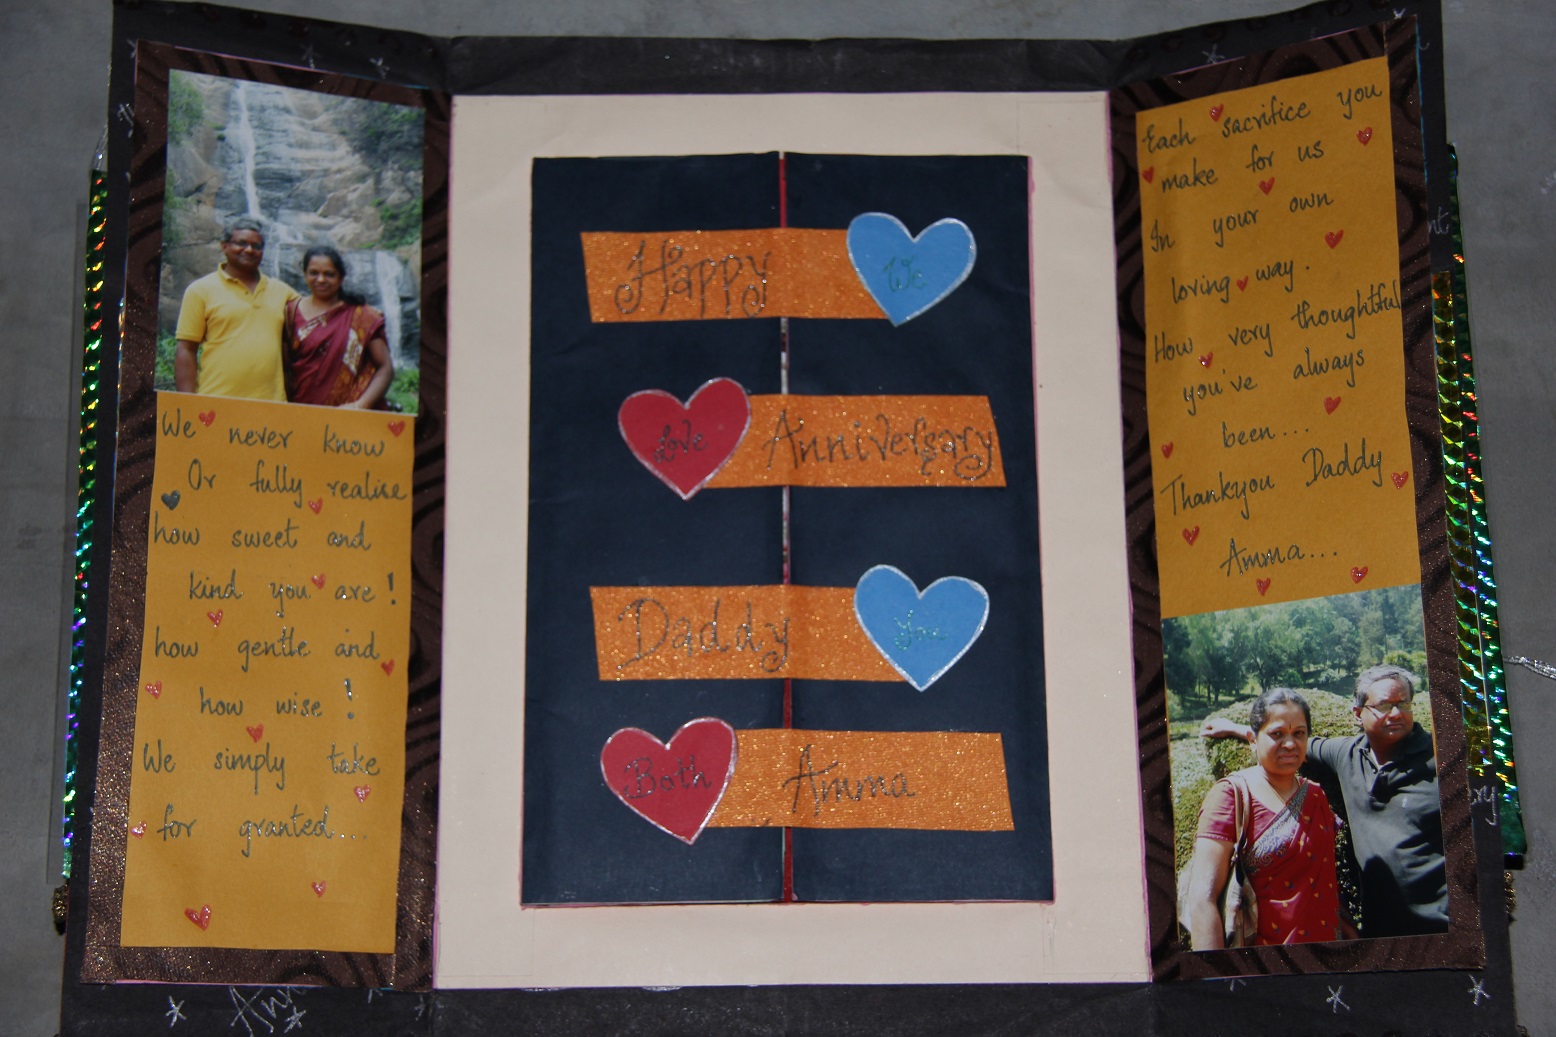 We never know
Or fully realise
how sweet and
kind you are!
how gentle and
how wise!
We simply take
for granted...
Happy We
Love Anniversary
Daddy You
Both Amma
Each sacrifice you
make for us
In your own
loving way.
How very thoughtful
you've always
been...
Thankyou Daddy
Amma...